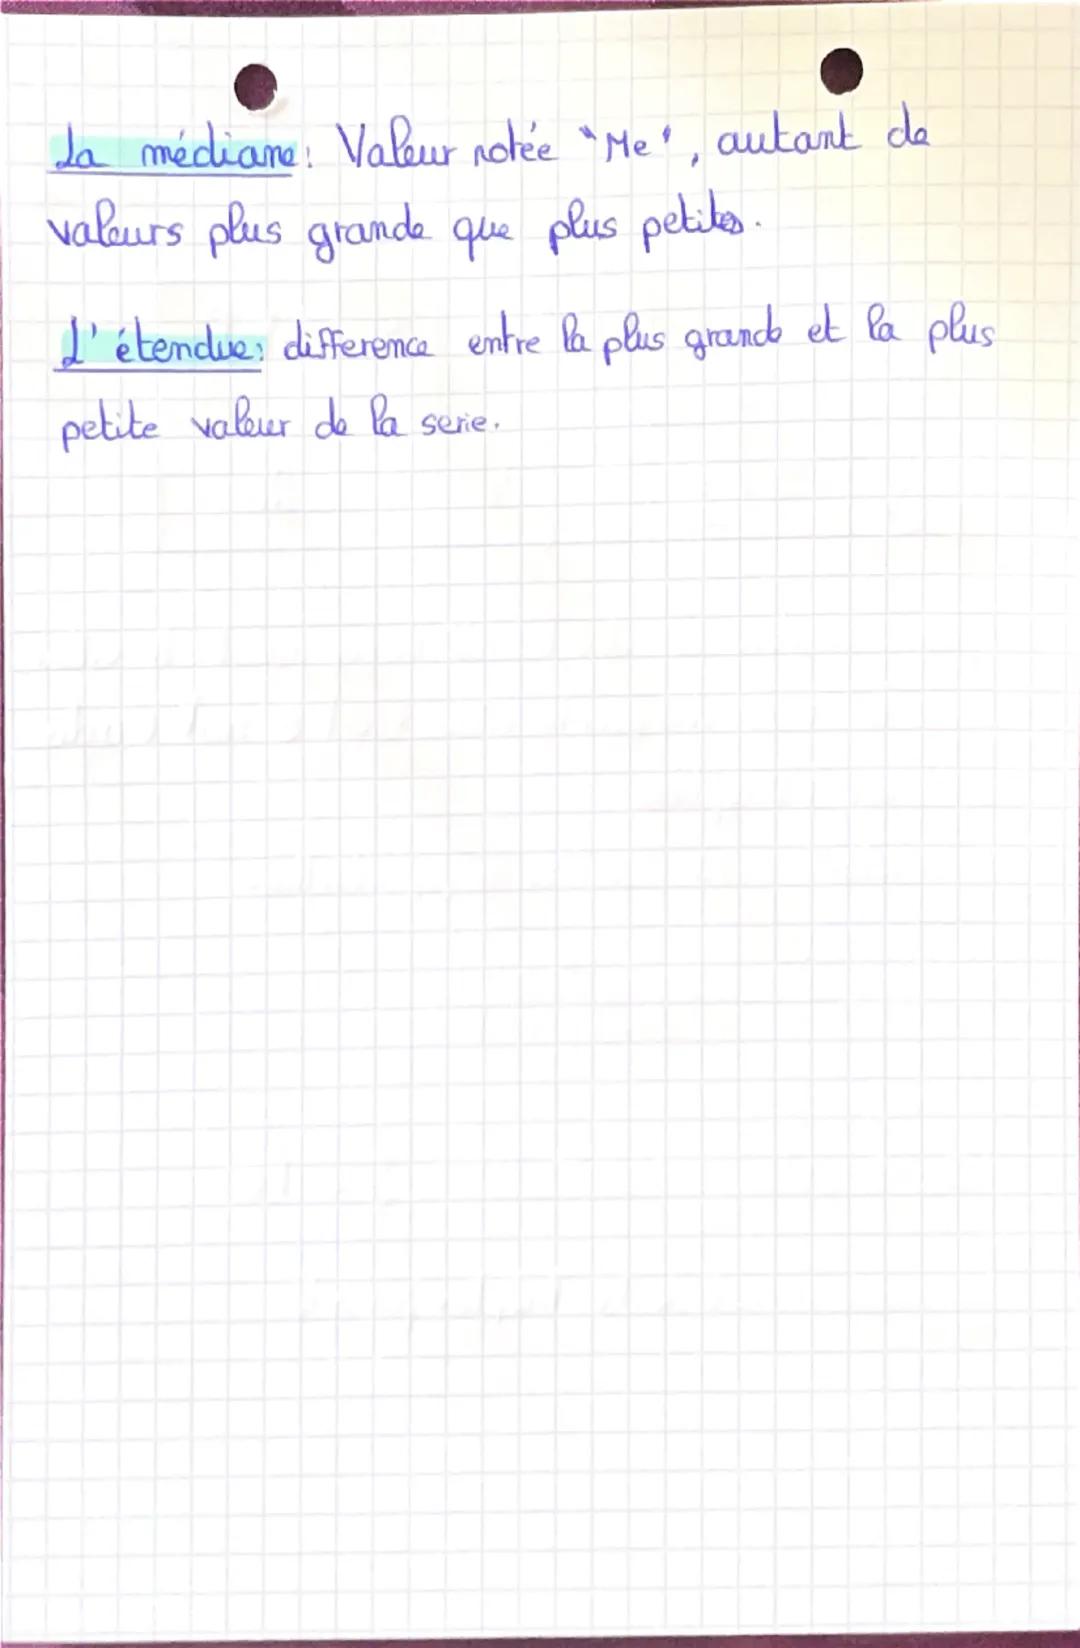 La médiane: Valeur notée "Me", autant de
valeurs plus grande que plus petites.
L'étendue: difference entre la plus grande et la plus
petite valeur de la serie.